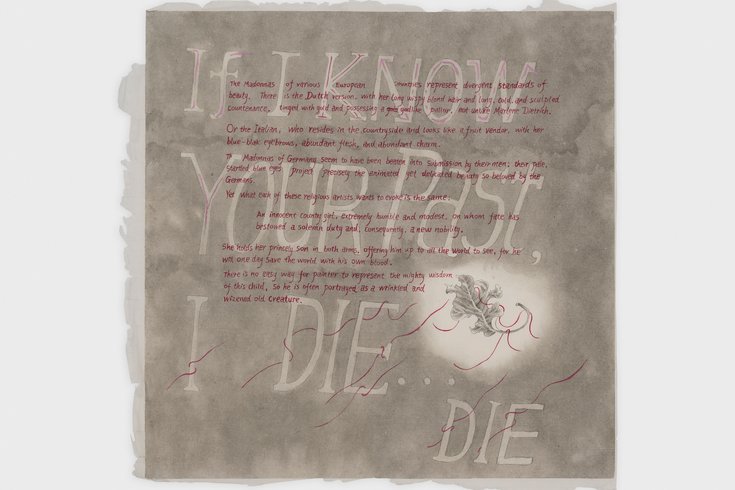 If I KNOW
YOUR Past,
I DIE...
DIE
The Madonnas of various European countries represent divergent standards of
beauty. There is the Dutch version, with her long wispy blond hair and long, cold, and sculpted
countenance, tinged with gold and possessing a godlike pallor, not unlike Marlene Dietrich.
Or the Italian, who resides in the countryside and looks like a fruit vendor, with her
blue-blak eyebrows, abundant flesh, and abundant charm.
The Madonnas of Germany seem to have been beaten into submission by their men; their pale,
startled blue eyes project precisely the animated yet delicated beauty so beloved by the
Germans.
Yet what each of these religious artists wants to evoke is the same:
An innocent country girl, extremely humble and modest, on whom fate has
bestowed a solemn duty and, consequently, a new nobility.
She holds her princely son in both arms, offering him up to all the world to see, for he
will one day save the world with his own blood.
There is no easy way for painter to represent the mighty wisdom
of this child, so he is often portrayed as a wrinkled and
wizened old creature.